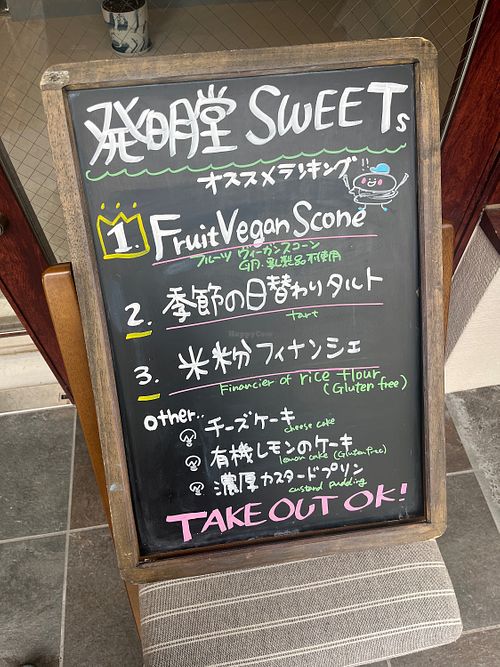 発明堂 SWEETs
オススメランキング!!
1. Fruit Vegan Scone
フルーツ ヴィーガンスコーン
卵・乳製品不使用
2. 季節の日替わりタルト
tart
3. 米粉フィナンシェ
Financier of rice flour
(Gluten free)
other..
チーズケーキ
cheese cake
有機レモンのケーキ
lemon cake (Gluten free)
濃厚カスタードプリン
custard pudding
TAKE OUT OK!
HappyCow